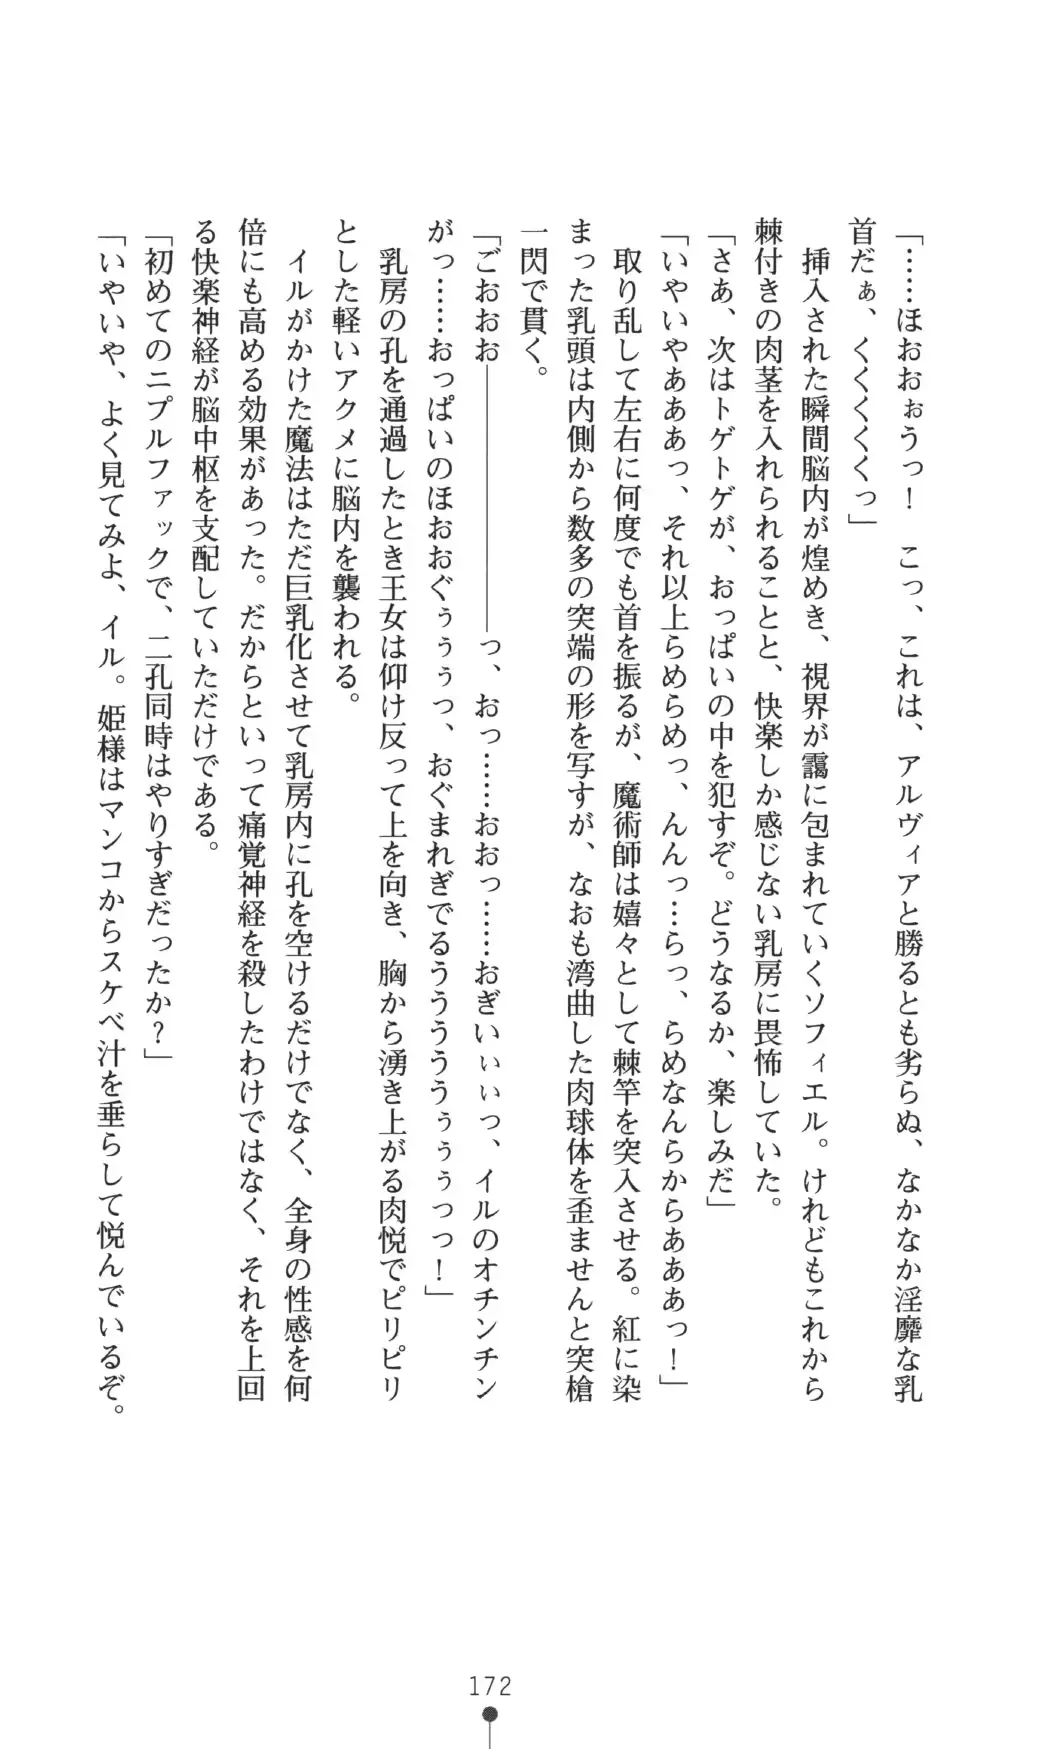 「……ほおおぉうっ！　こっ、これは、アルヴィアと勝るとも劣らぬ、なかなか淫靡な乳
首だぁ、くくくくっ」
　挿入された瞬間脳内が煌めき、視界が靄に包まれていくソフィエル。けれどもこれから
棘付きの肉茎を入れられることと、快楽しか感じない乳房に畏怖していた。
「さあ、次はトゲトゲが、おっぱいの中を犯すぞ。どうなるか、楽しみだ」
「いやいやああぁっ、それ以上らめらめっ、んんっ…らっ、らめなんらからあああっ！」
　取り乱して左右に何度でも首を振るが、魔術師は嬉々として棘竿を突入させる。紅に染
まった乳頭は内側から数多の突端の形を写すが、なおも湾曲した肉球体を歪ませんと突槍
一閃で貫く。
「ごおおお――――――――っ、おっ……おおっ……おぎいぃぃっ、イルのオチンチン
がっ……おっぱいのほおおぐぅぅぅっ、おぐまれぎでるううううぅぅぅっっ！」
　乳房の孔を通過したとき王女は仰け反って上を向き、胸から湧き上がる肉悦でピリピリ
とした軽いアクメに脳内を襲われる。
　イルがかけた魔法はただ巨乳化させて乳房内に孔を空けるだけでなく、全身の性感を何
倍にも高める効果があった。だからといって痛覚神経を殺したわけではなく、それを上回
る快楽神経が脳中枢を支配していただけである。
「初めてのニプルファックで、二孔同時はやりすぎだったか？」
「いやいや、よく見てみよ、イル。姫様はマンコからスケベ汁を垂らして悦んでいるぞ。
172